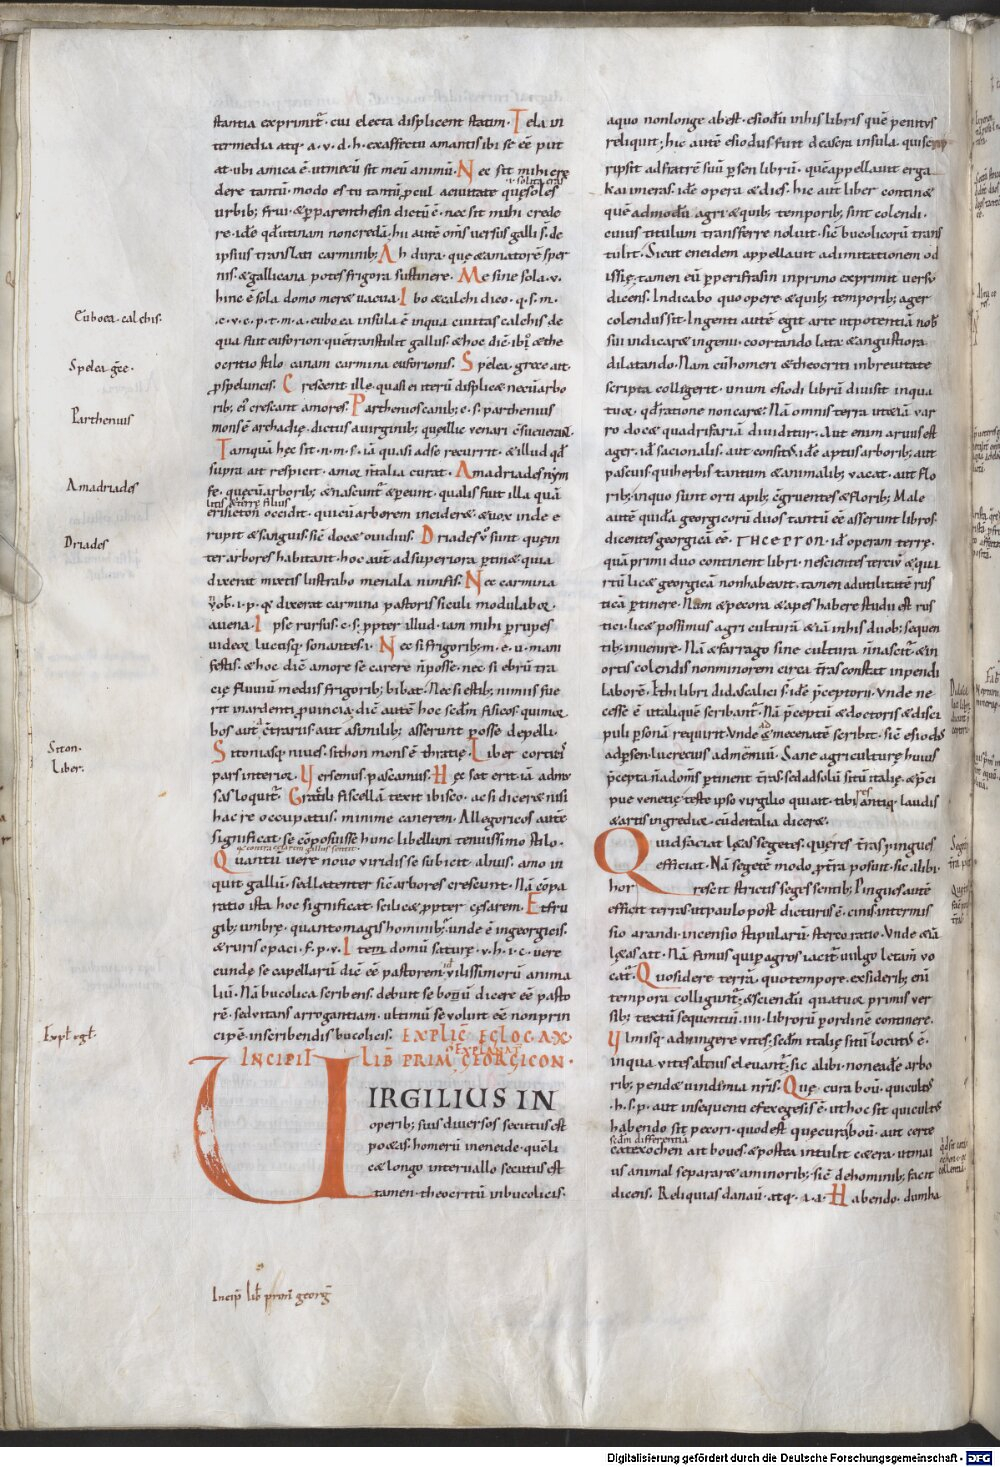 stantia exprimit᷑. cui electa displicent statim. Tela in
termedia atq; a. v. d. h. ex affectu amantis ibi se eē put
at. ubi amica ē. ut mecū sit meū animū. Nec sit mihi cre
dere tantū. modo es tu tantū ꝓcul a ciuitate quę soles
.i. solita eras
urbib; frui. & ꝑ parenthesin dictū ē. nec sit mihi crede
re. idē qđ utinam non credā. hi autē om̄s uersus galli s. de
ipsius translati carminib; Ah dura. quę & amatorē sper
nis. & gallicana potes frigora sustinere. Me sine sola. v.
hinc ē sola domo meręt uacua. Ibo & calchi dico. q. s. m.
.e. v. c. p. t. m. a. euboea insula ē in qua ciuitas calchis. de
qua fuit euforion quē transtulit gallus. & hoc dic̄ ibi. & the
ocritio stilo canam carmina euforionis. Spelea. grece ait.
ꝓ speluncis. Crescent ille. quasi ei iterū displicet necū arbo
rib; ei crescant amores. Parthenios canib; e. s. parthenius
mons ē archadię. dictus a uirginib; quę illic uenari c̄sueuerant.
Tamquā hęc sit. n. m. s. iā quasi ad se recurrit. & illud qđ
supra ait respicit. amor n̄ talia curat. Amadriades nym
fę. quę cū arborib; & nascunt᷑ & pereunt. qualis fuit illa quā
erisicton occidit. qui cū arborem incideret & uox inde e
rupit & sanguis. sic̄ docet ouidius. Driades v̊ sunt quę in
ter arbores habitant. hoc aut̄ ad superiora ꝑtinet quia
dixerat mixtis lustrabo menala nimfis. Nec carmina
nob. i. p. qꝫ dixerat carmina pastoris siculi modulabor.
auena. Ipse rursus. c. s. ꝓpter illud. iam mihi ꝑ rupes
uideor lucosq; sonantes. i. Nec si frigorib; m. e. u. mani
festis. & hoc dic̄ amore se carere n̄ posse. nec si ebrū tra
cię fluuiū mediis frigorib; bibat. Nec si estib; nimiis fue
rit in ardenti prouincia. dic̄ autē hoc scdm̄ fisicos. qui mor
bos aut c̄trariis. aut a similib; asserunt posse depelli.
Sitoniasq; niues. sithon mons ē thracię. Liber corticis
pars interior. Versemus. pascamus. Hęc sat erit. iā ad mu
sas loquit᷑. Gracili fiscellā texit ibisco. ac si diceret nisi
hac re occupatus. minime canerem. Allegoricos autē
significat se cōposuisse hunc libellum tenuissimo stilo.
Quantū uere nouo uiridis se subicit alnus. amo in
quit gallū. sed latenter sic̄ arbores crescunt. Nā cōpa
ratio ista hoc significat. scilicet ꝓpter cęsarem. Et fru
gib; umbrę. quanto magis hominib; unde ē in georgicis.
& ruris opaci. f. p. v. Item domū saturę. v. h. i. c. uere
cunde se capellarū dic̄ eē pastorem. id uilissimorū anima
liū. Nā bucolica scribens. debuit se boum dicere eē pasto
rē. sed uitans arrogantiam. ultimū se uoluit eē non prin
cipē inscribendis bucolicis. EXPLIC̄ EGLOC A X.
INCIPIT EXPLANAT̄
LIB PRIM GEORGICON.
VIRGILIUS IN
operib; suis diuersos secutus est
poetas. homerū in eneide. quē li
cet longo interuallo secutus est
tamen. theocritū in bucolicis.
a quo non longe abest. esiodū in his libris quē penitus
reliquit; hic autē esiodus fuit de ascra insula. qui sc
ripsit ad fratrē suū persen librū. quē appellauit erga
kai imeras. idē opera & dies. hic aut̄ liber continet
quē admodū agri & quib; temporib; sint colendi.
cuius titulum transferre noluit. sic̄ bucolicorū trans
tulit. Sicut eneidem appellauit ad imitationem od
issię. tamen eū ꝑ perifrasin in primo exprimit uersu
dicens. Indicabo quo opere & quib; temporib; ager
colendus sit. Ingenti autē egit arte ut potentiā nob
sui indicaret ingenii. coortando lata & angustiora
dilatando. Nam cū homeri & theocriti in breuitate
scripta collegerit. unum esiodi librū diuisit in qua
tuor. qđ ratione non caret. Nā omnis terra ut etiā var
ro docet quadrifariā diuiditur. Aut enim aruus est
ager. id sacionalis. aut consitus. id ē aptus arborib; aut
pascuus qui herbis tantum & animalib; vacat. aut flo
rib; in quo sunt orti apib; c̄gruentes & florib; Male
autē quidā georgicorū duos tantū eē asserunt libros.
dicentes georgicā eē. ΓΗC ΕΡΓΟΝ. id operam terrę.
quā primi duo continent libri. nescientes tertiū & qua
rtū licet georgicā non habeant. tamen ad utilitatē rus
ticā ꝑtinere. Nam & pecora & apes habere studii est rus
tici. licet possimus agri culturā & iā in his duob; sequen
tib; inuenire. Nā & farrago sine cultura n̄ nascit᷑. & in
ortis colendis non minorem circa t̄ras constat inpendi
laborē. & hi libri didascalici s. id ē p̄ceptorii. Vnde ne
cesse ē ut ad aliquē scribant᷑. Nā p̄ceptū & doctoris & disci
puli ꝑsonā requirit. Vnde ad mecenatē scribit. sic̄ esiodus
ad persen. lucrecius ad mēmiū. Sane agriculturę huius
p̄cepta n̄ ad om̄s ꝑtinent t̄ras. sed ad solū sitū italię. & p̄ci
pue venetię. teste ipso virgilio qui ait. tibi res antiq laudis
& artis ingredior. cū de italia diceret.
Quid faciat lętas segetes. quę res t̄ras pingues
efficiat. Nā segetē modo ꝓ t̄ra posuit. sic alibi.
horrescit strictis seges ensib; Pingues autē
efficit terras. ut paulo post dicturus ē. cinis. intermis
sio arandi. incensio stipularū. stercoratio. Vnde & iā
lętas ait. Nā fimus qui ꝑ agros iacit᷑. uulgo letam̄ vo
cat᷑. Quo sidere terrā. quo tempore. ex siderib; eni
tempora colligunt᷑. & sciendū quatuor primis ver
sib; textū sequentiū. iiii. librorū ꝑ ordinē continere.
Vlmisq; adiungere vites. scdm̄ italię sitū locutus ē.
in qua vites altius eleuant᷑. sic alibi. non eadē arbo
rib; pendet uindemia nr̄is. Quę cura boū. qui cultus
.h. s. p. aut insequenti efexegesis ē. ut hoc sit qui cultus
habendo sit pecori. quod est quę cura boū. aut certe
catexochen ait boues. & postea intulit cętera. ut mai
us animal separaret a minorib; sic̄ de hominib; facit
dicens. Reliquias danaū. atq. i. a. Habendo. dum ha
Cuboea. calchis.
Spelea. grēe.
Parthenius
Amadriades
Driades
Siton.
Liber.
Expl egl.
Incip̄ lib primi georḡ
Digitalisierung gefördert durch die Deutsche Forschungsgemeinschaft - DFG